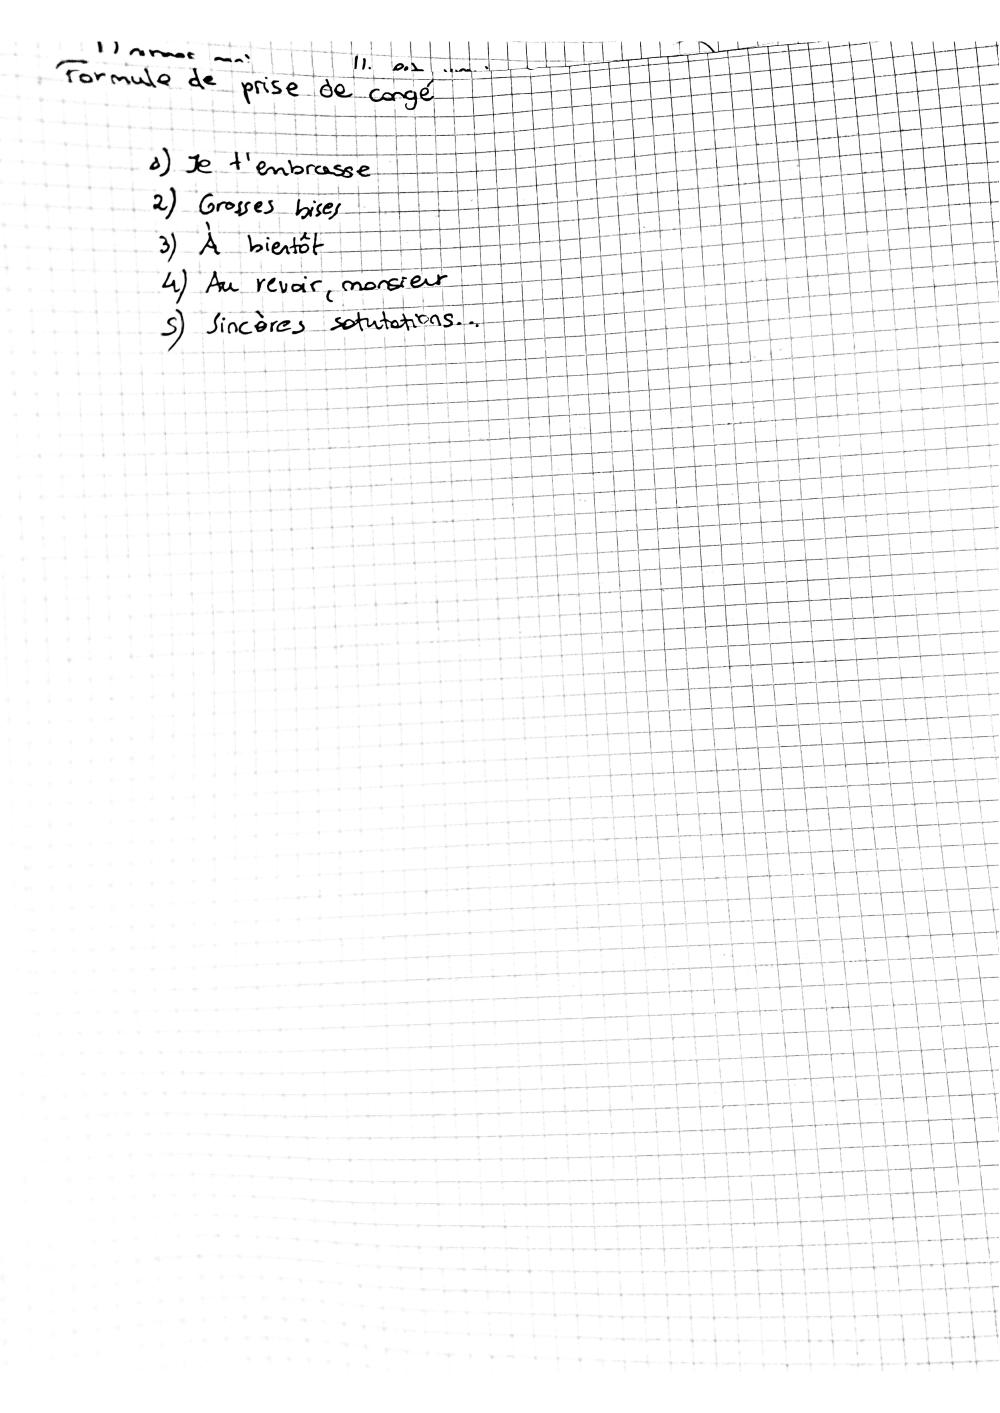 Formule de prise de congé
1) Je t'embrasse
2) Grosses bises
3) À bientôt
4) Au revoir, monsieur
5) Sincères salutations...